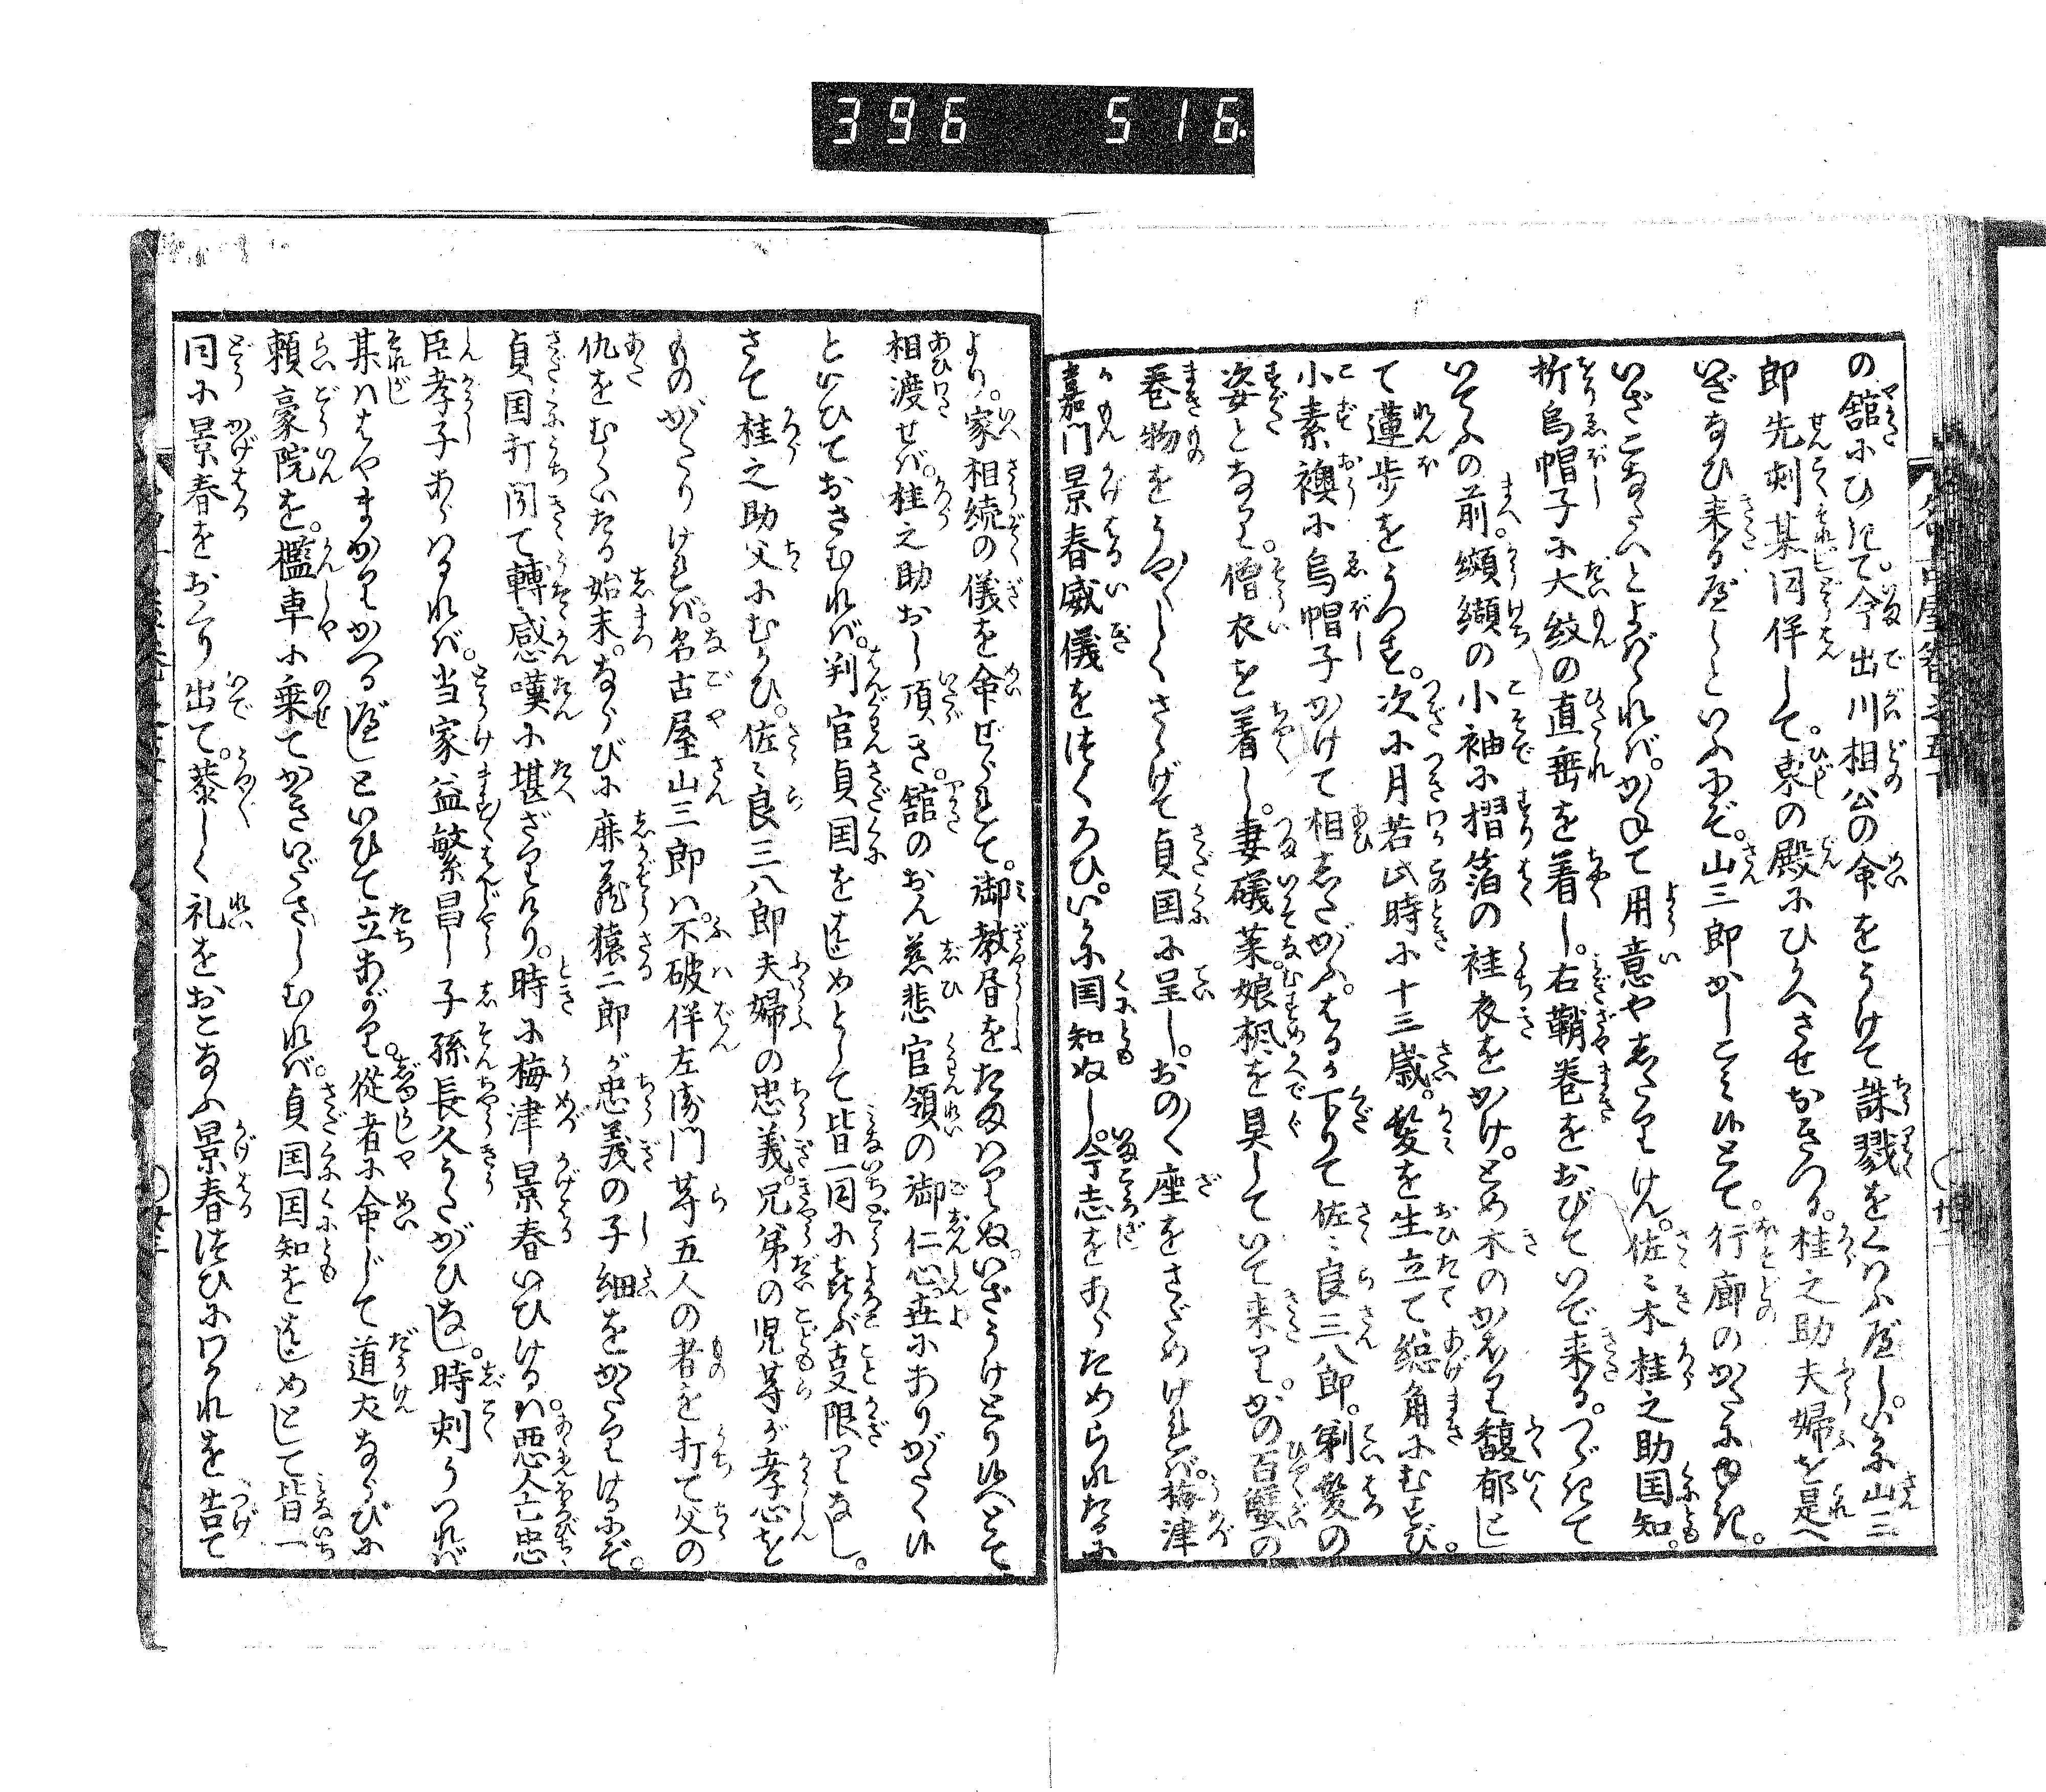 396 516
の舘にひきて。今出川相公の命をうけて誅戮をくはふべし。いかに山三
郎先刻某同伴して。東の殿にひかへさせおきつる。桂之助夫婦を是へ
いざなひ来るべしといふにぞ。山三郎かしこみ候とて。行廊のかたにゆき。
いざこなたへとよばゝれば。かねて用意やしたりけん。佐々木桂之助国知。
折烏帽子に大紋の直垂を着し。右鞘巻をおびていで来る。つゞきて
いてふの前。纐纈の小袖に摺箔の袿衣をかけ。とめ木のかをり馥郁とし
て蓮歩をうつせば。次に月若此時に十三歳。髪を生立て総角にむすび。
小素襖に烏帽子かけて相したがふ。はるか下りて佐々良三八郎。剃髪の
姿となり。僧衣を着し。妻礒菜。娘楓を具していで来り。かの百蟹の
巻物をうや〳〵しくさゝげて貞国に呈し。おの〳〵座をさだめければ。梅津
嘉門景春威儀をつくろひ。いかに国知ぬし。今志をあらためられたるに
より。家相続の儀を命ぜられて。御教書をたまはりぬ。いざうけとり候へとて
相渡せば。桂之助おし頂き。舘のおん慈悲官領の御仁心。世にありがたく候
といひておさむれば。判官貞国をはじめとして皆一同に喜ぶ事限りなし。
さて桂之助父にむかひ。佐々良三八郎夫婦の忠義。兄弟の児等が孝心を
ものがたりければ。名古屋山三郎は。不破伴左衛門等五人の者を打て父の
仇をむくいたる始末。ならびに鹿蔵猿二郎が忠義の子細をかたりけるにぞ。
貞国打聞て転感嘆に堪ざりけり。時に梅津景春いひけるは。悪人亡忠
臣孝子あらはるれば。当家益繁昌し子孫長久うたがひなし。時刻うつれば
某ははやまかりかへるべしといひて立あがり。従者に命じて道犬ならびに
頼豪院を。檻車に乗てかきいださしむれば。貞国国知をはじめとして皆一
同に景春をおくり出て。恭しく礼をおこなふ景春つひにわかれを告て